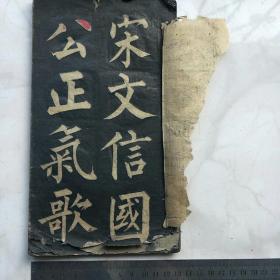 宋文信國
公正氣歌